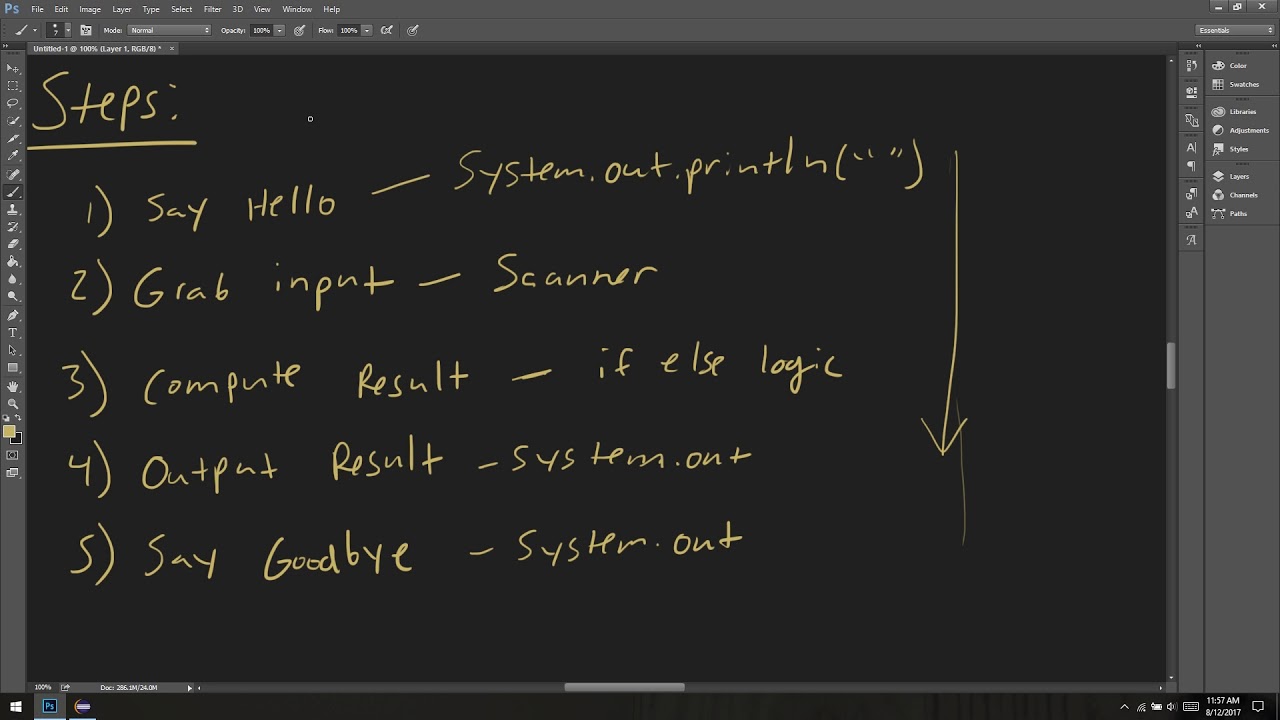 Ps File Edit Image Layer Type Select Filter 3D View Window Help
7 Mode: Normal Opacity: 100% Flow: 100% Essentials
Untitled-1 @ 100% (Layer 1, RGB/8) * ×
Steps:
1) Say Hello — System.out.println(“ ”)
2) Grab input — Scanner
3) Compute Result — if else logic
4) Output Result - System.out
5) Say Goodbye - System.out
Color
Swatches
Libraries
Adjustments
Styles
Layers
Channels
Paths
100% Doc: 286.1M/24.0M
Ps 11:57 AM
8/12/2017